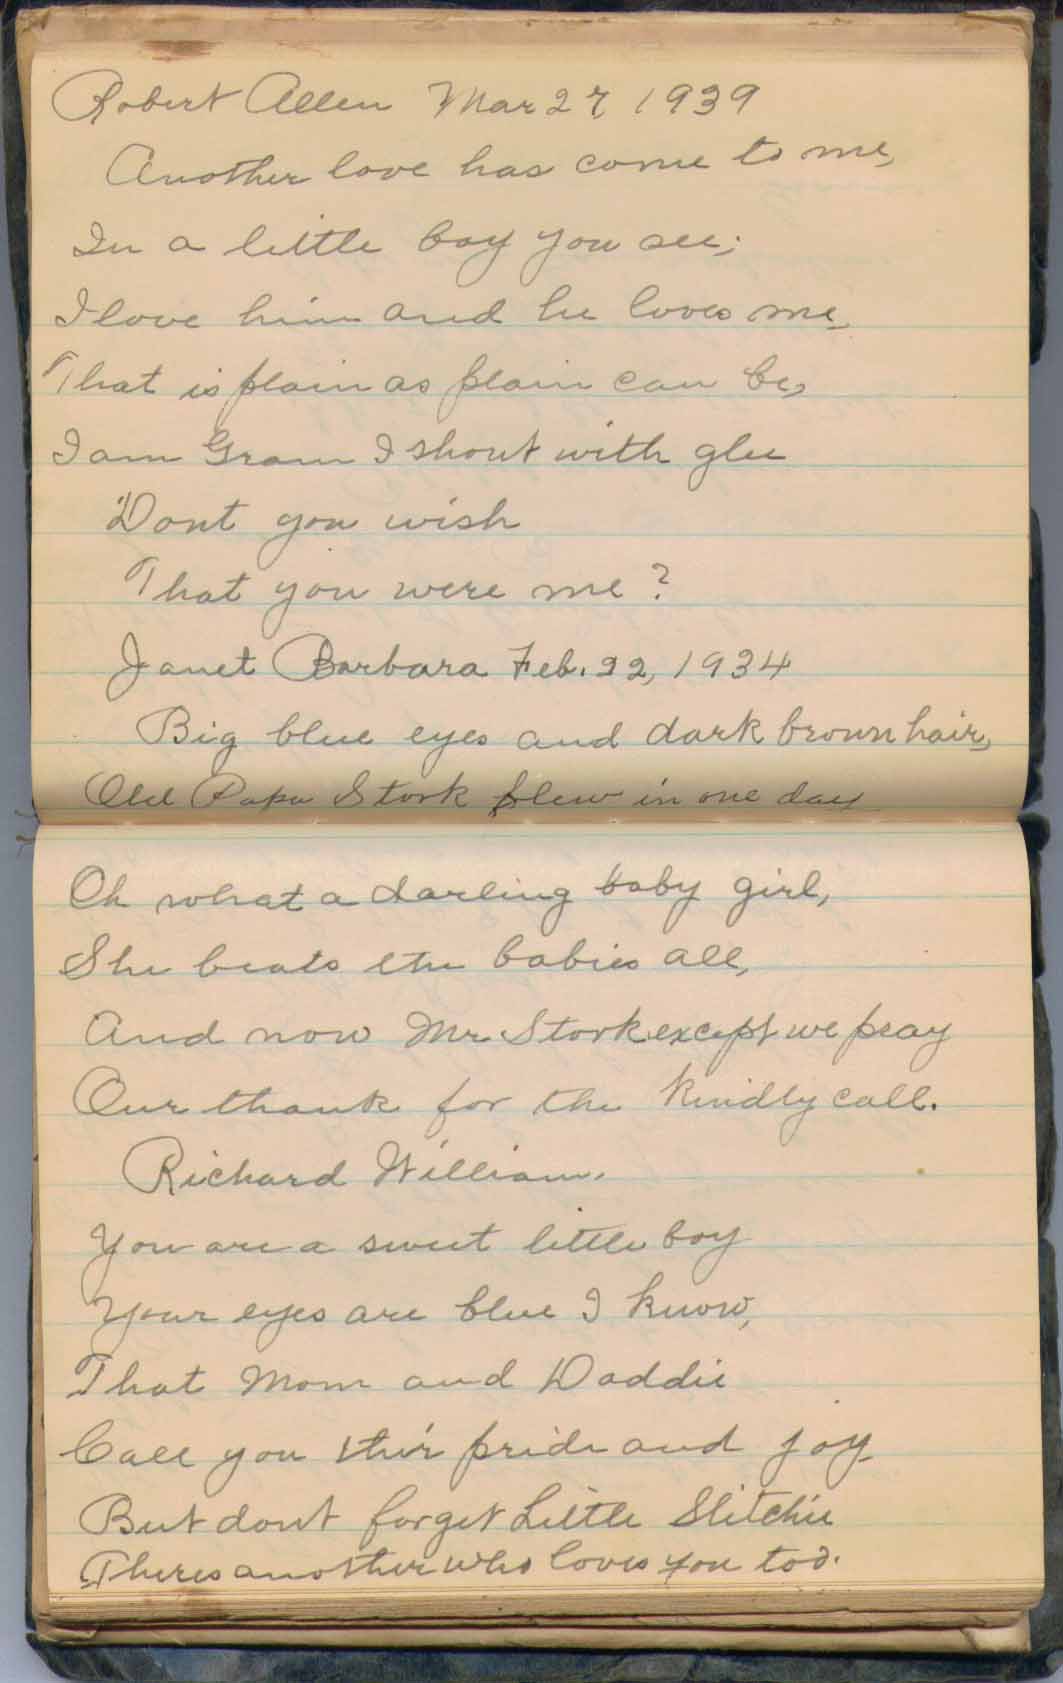 Robert Allen Mar 27 1939
Another love has come to me,
In a little boy you see;
I love him and he loves me,
That is plain as plain can be,
I am Gram I shout with glee
"Dont you wish
That you were me?
Janet Barbara Feb. 22, 1934
Big blue eyes and dark brown hair,
Old Papa Stork flew in one day
Oh what a darling baby girl,
She beats the babies all,
And now Mr. Stork except we pray
Our thank for the kindly call.
Richard William.
You are a sweet little boy
Your eyes are blue I know,
That Mom and Daddie
Call you thir pride and joy
But dont forget Little Slitchie
Theres another who loves you too.